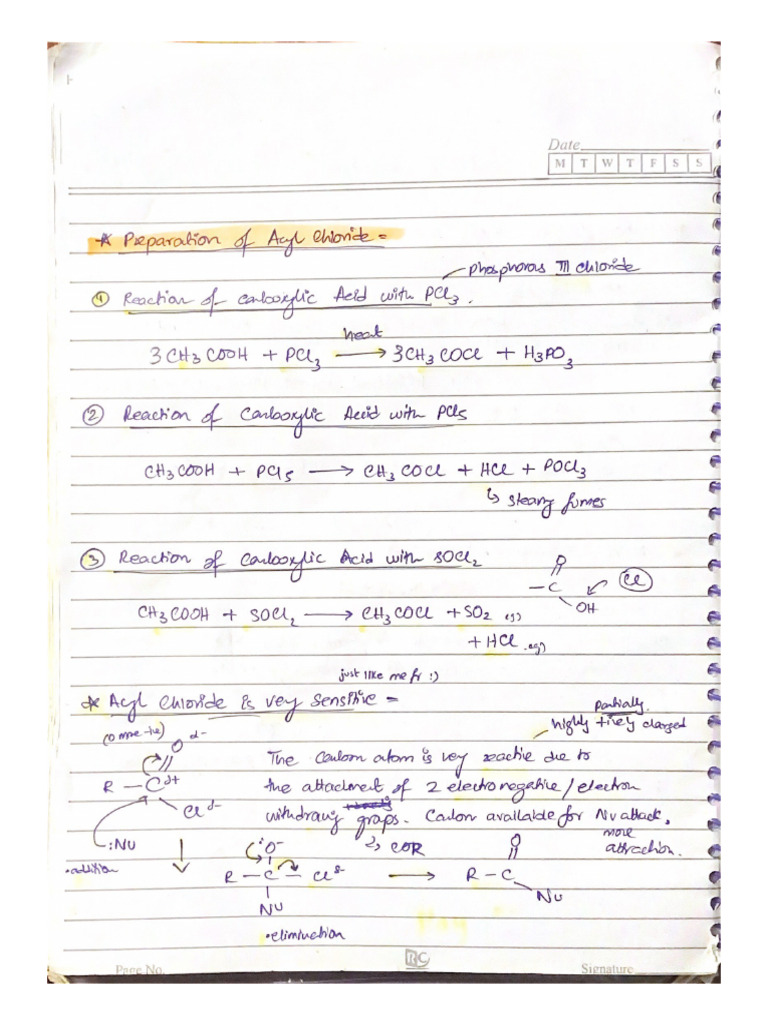 Date
M T W T F S S
* Preparation of Acyl Chloride =
phosphorous III chloride
① Reaction of carboxylic Acid with PCl3.
heat
3CH3COOH + PCl3 ⟶ 3CH3COCl + H3PO3
② Reaction of Carboxylic Acid with PCl5
CH3COOH + PCl5 ⟶ CH3COCl + HCl + POCl3
↳ steamy fumes
③ Reaction of Carboxylic Acid with SOCl2
O
-C Cl
OH
CH3COOH + SOCl2 ⟶ CH3COCl + SO2 (g)
+ HCl (g)
just like me fr :)
* Acyl Chloride is very Sensitive =
partially
highly +vely charged
(O more -ve)
O d-
The Carbon atom is very reactive due to
R - C d+
the attachment of 2 electronegative/electron
Cl d-
withdrawing groups. Carbon available for Nu attack,
more
attraction.
:Nu
•addition
:O-
COR
O
R - C - Cl d- ⟶ R - C
Nu
Nu
•elimination
Page No.
RC
Signature